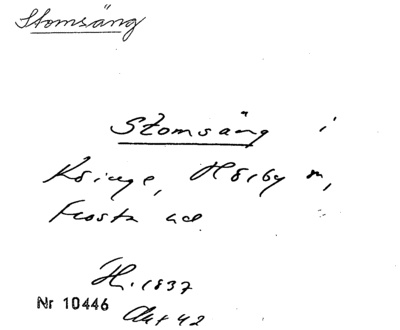 Stomsäng
Stomsäng i
Kringe, Hörby sn,
Frosta hd
H. 1837
Nr 10446
Akt 42